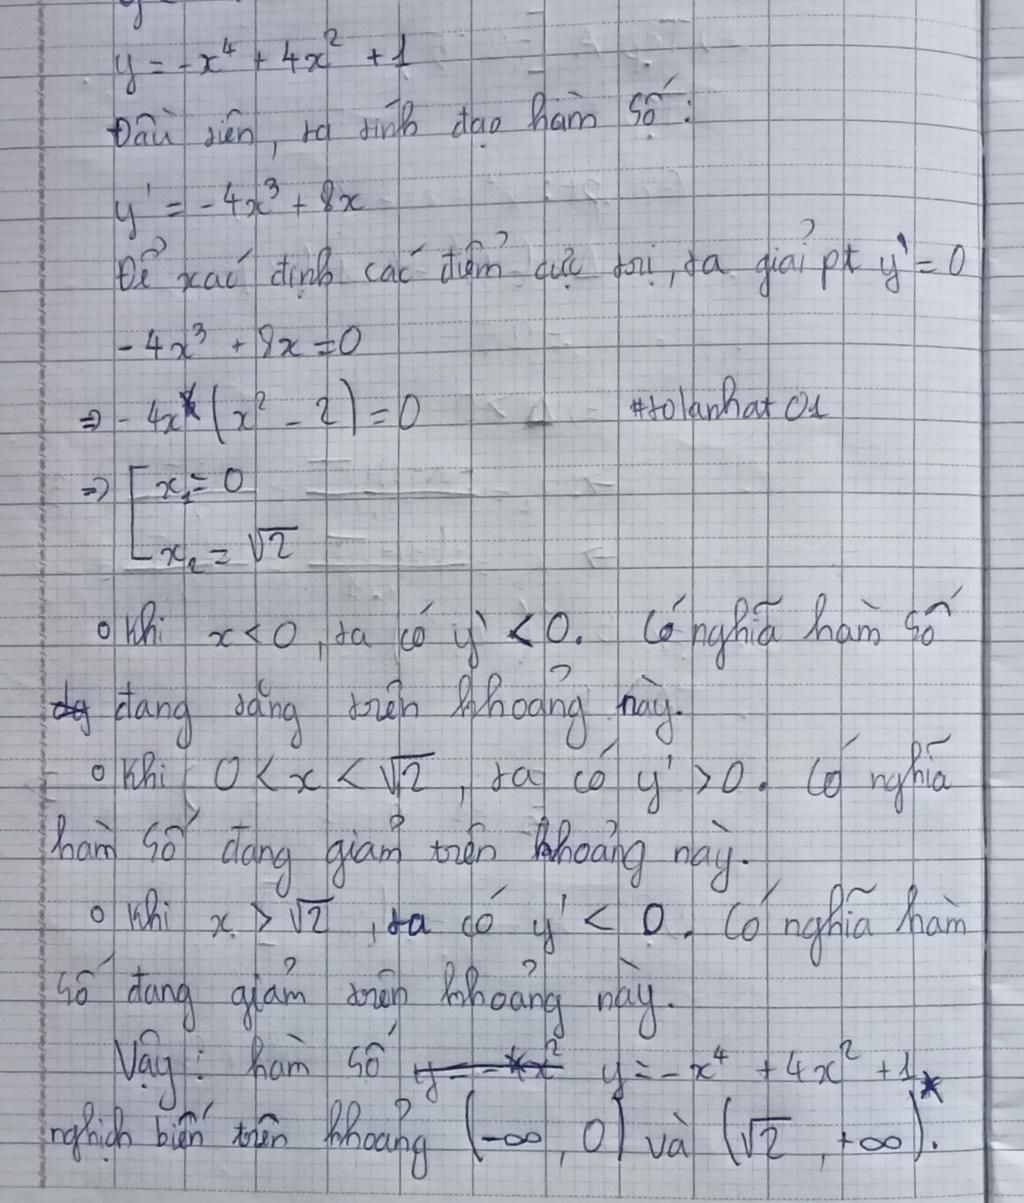 y = -x⁴ + 4x² + 1
Đầu tiên, ta tính đạo hàm số:
y' = -4x³ + 8x
Để xác định các điểm cực trị, ta giải pt y' = 0
-4x³ + 8x = 0
⇒ -4x (x² - 2) = 0
#tolanhat01
⇒ [ x₁ = 0
x₂ = √2
o Khi x < 0, ta có y' < 0. Có nghĩa hàm số
đang tăng trên khoảng này.
o Khi 0 < x < √2, ta có y' > 0. Có nghĩa
hàm số đang giảm trên khoảng này.
o Khi x > √2, ta có y' < 0. Có nghĩa hàm
số đang giảm trên khoảng này.
Vậy: hàm số y = -x⁴ + 4x² + 1
nghịch biến trên khoảng (-∞, 0) và (√2, +∞).